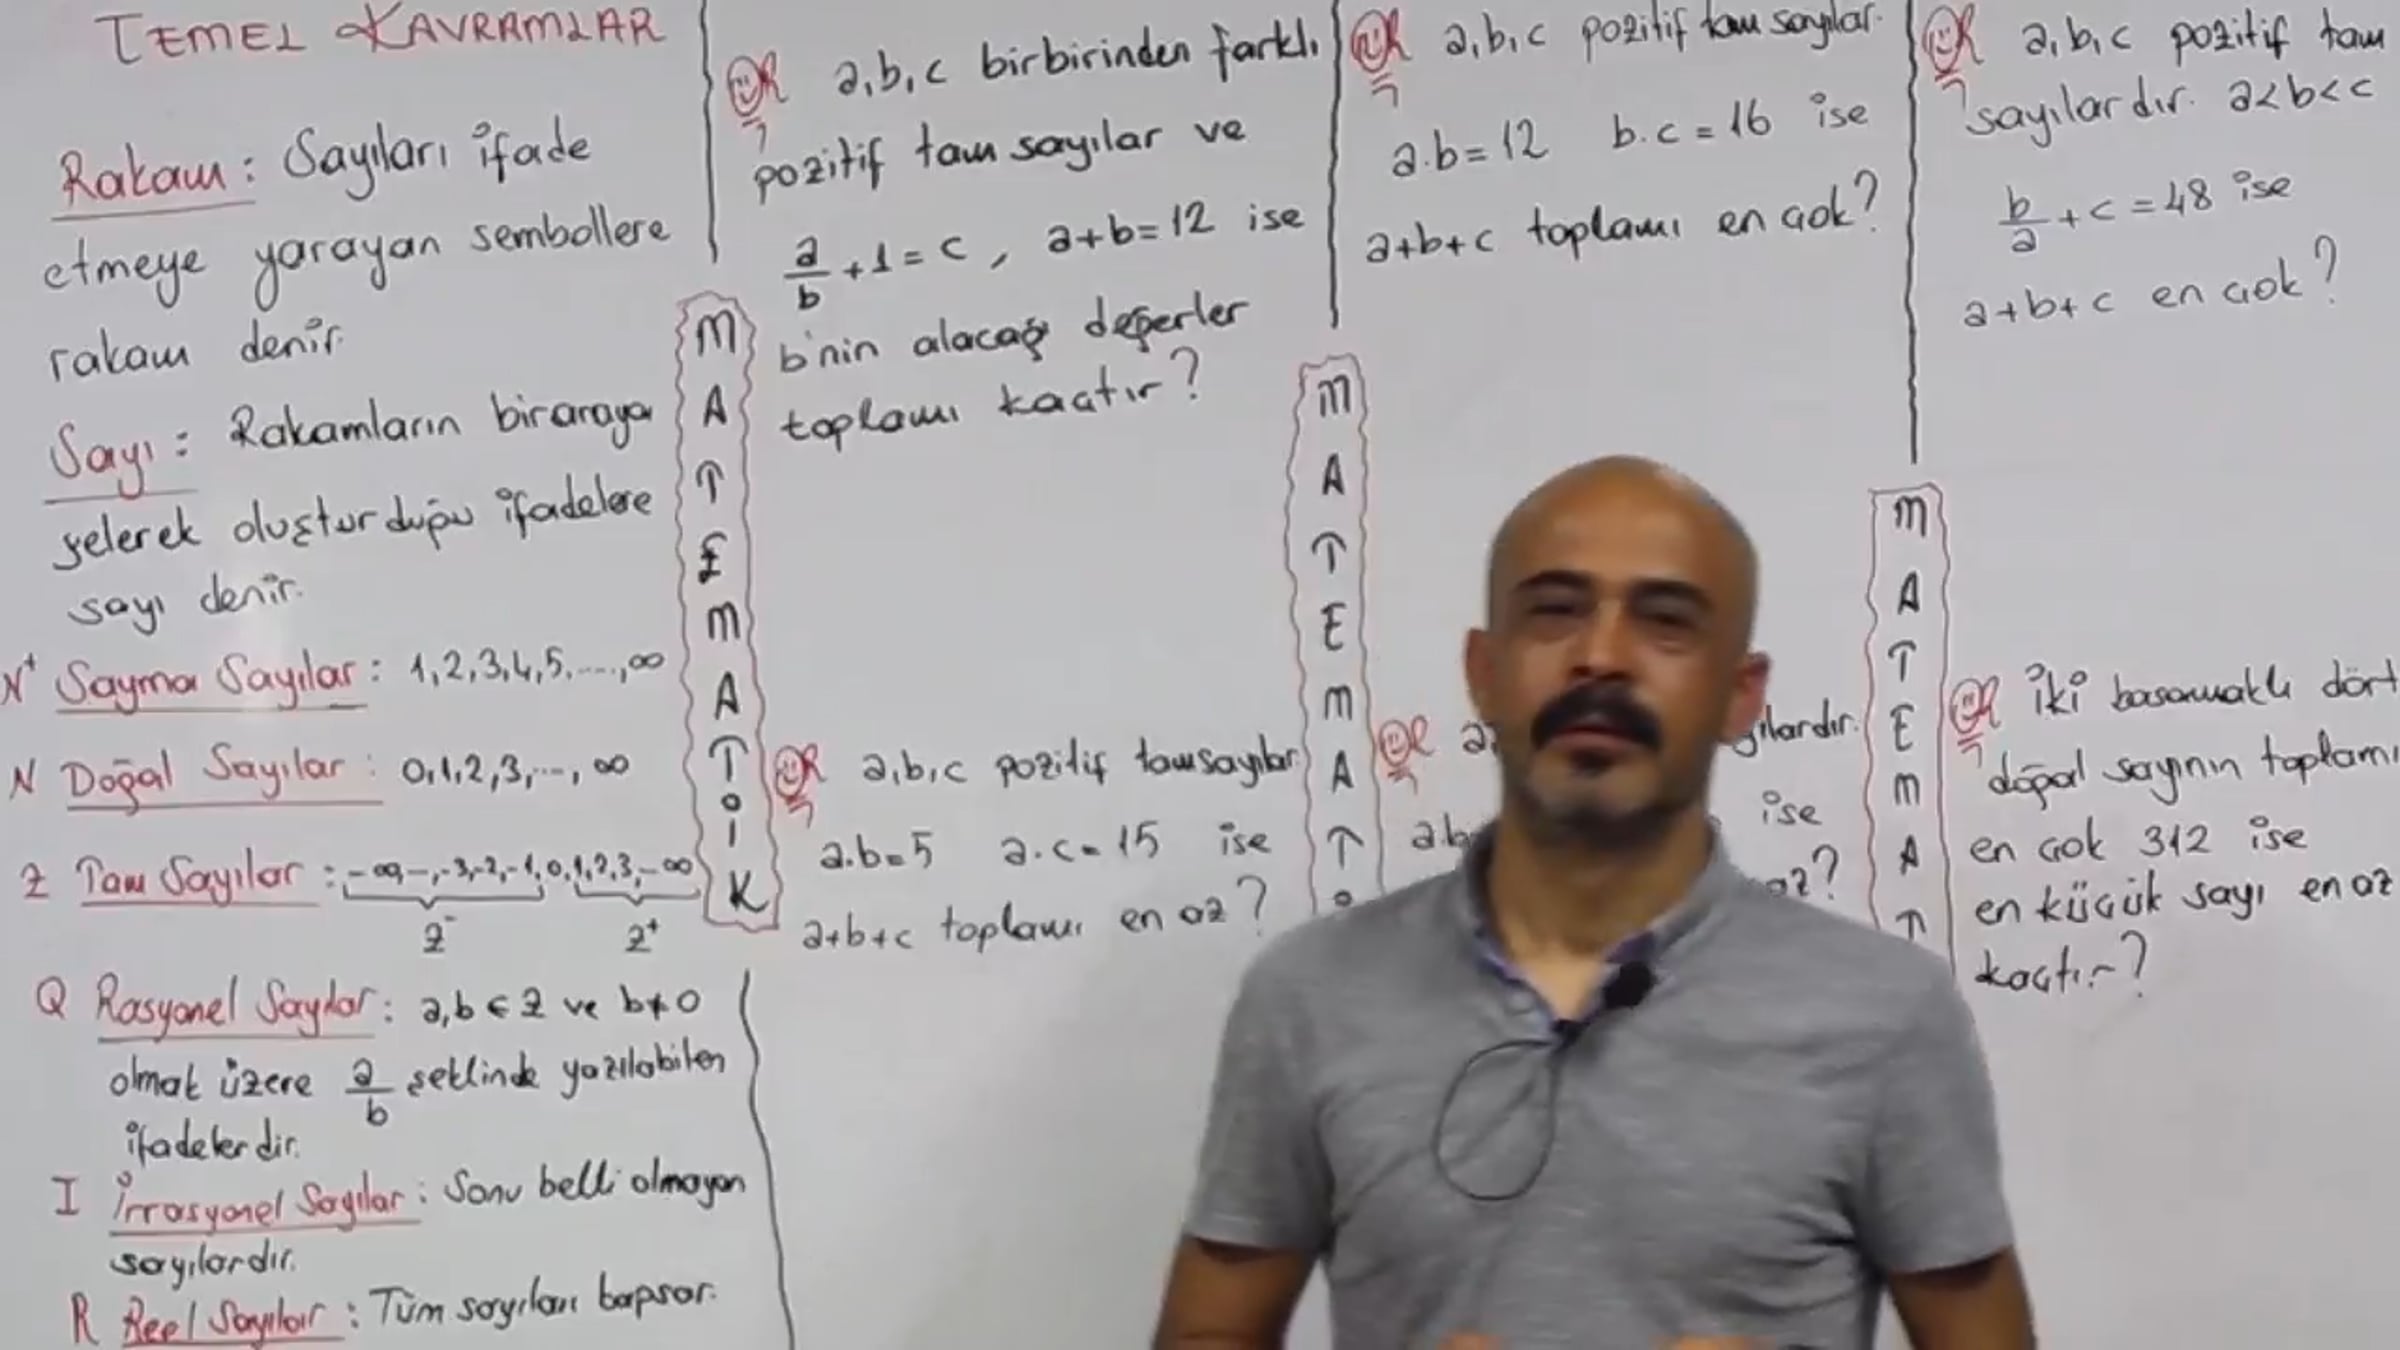 TEMEL KAVRAMLAR
Rakam: Sayıları ifade
etmeye yarayan sembollere
rakam denir.
Sayı: Rakamların biraraya
gelerek oluşturduğu ifadelere
sayı denir.
N⁺ Sayma Sayılar: 1,2,3,4,5,....,∞
N Doğal Sayılar: 0,1,2,3,...,∞
Z Tam Sayılar: -∞,-,-3,-2,-1,0,1,2,3,-∞
Z⁻ Z⁺
Q Rasyonel Sayılar: a,b ∈ Z ve b≠0
olmak üzere a/b şeklinde yazılabilen
ifadelerdir.
I İrrasyonel Sayılar: Sonu belli olmayan
sayılardır.
R Reel Sayılar: Tüm sayıları kapsar.
MATEMATİK
ÖR a,b,c birbirinden farklı
pozitif tam sayılar ve
a/b +1=c, a+b=12 ise
b'nin alacağı değerler
toplamı kaçtır?
ÖR a,b,c pozitif tamsayılar
a.b=5 a.c=15 ise
a+b+c toplamı en az?
MATEMAT
ÖR a,b,c pozitif tam sayılar.
a.b=12 b.c=16 ise
a+b+c toplamı en çok?
ÖR a
a.b ise
az?
MATEMAT
ÖR a,b,c pozitif tam
sayılardır. a<b<c
b/a +c=48 ise
a+b+c en çok?
ÖR iki basamaklı dört
doğal sayının toplamı
en çok 312 ise
en küçük sayı en az
kaçtır?